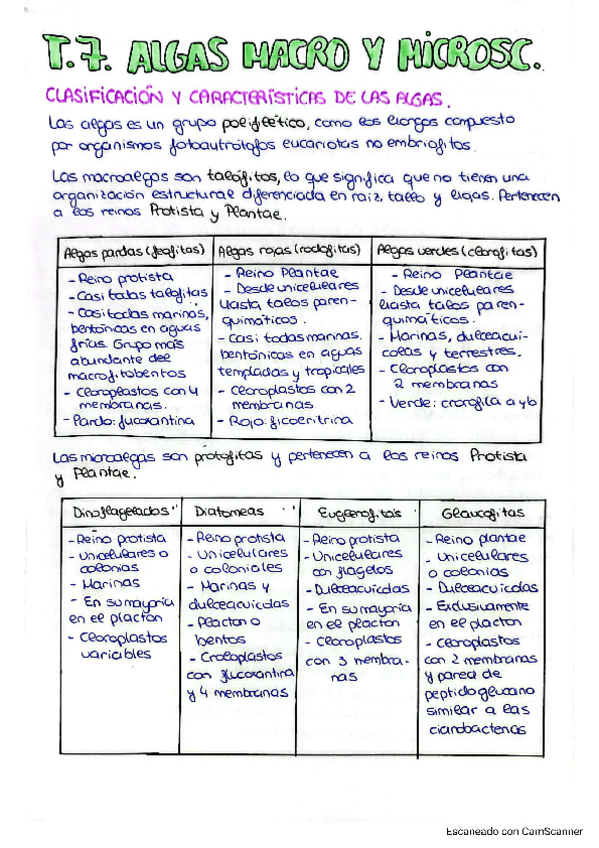 T.7. ALGAS MACRO Y MICROSC.
CLASIFICACIÓN Y CARACTERÍSTICAS DE LAS ALGAS.
Las algas es un grupo polifilético, como los hongos compuesto
por organismos fotoautótofos eucariotas no embriofitos.
Las macroalgas son talofitos, lo que significa que no tienen una
organización estructural diferenciada en raiz, tallo y hojas. Pertenecen
a los reinos Protista y Plantae.
Algas pardas (feofitas)
- Reino protista
- Casi todas talofitas
- Casi todas marinas,
bentónicas en aguas
frías. Grupo más
abundante del
macrofitobentos
- Cloroplastos con 4
membranas.
- Pardo: fucoxantina
Algas rojas (rodofitas)
- Reino Plantae
- Desde unicelulares
hasta talos paren-
quimáticos.
- Casi todas marinas.
bentónicas en aguas
templadas y tropicales
- Cloroplastos con 2
membranas
- Rojo: ficoeritrina
Algas verdes (clorofitas)
- Reino Plantae
- Desde unicelulares
hasta talos paren-
quimáticos.
- Marinas, dulceacuí-
colas y terrestres.
- Cloroplastos con
2 membranas
- Verde: clorofila a y b
Las microalgas son protofitas y pertenecen a los reinos Protista
y Plantae.
Dinoflagelados
- Reino protista
- Unicelulares o
colonias
- Marinas
- En su mayoría
en el placton
- Cloroplastos
variables
Diatomeas
- Reino protista
- Unicelulares
o coloniales
- Marinas y
dulceacuícolas
- Placton o
bentos
- Cloroplastos
con fucoxantina
y 4 membranas
Euglenofitas
- Reino protista
- Unicelulares
con flagelos
- Dulceacuícolas
- En su mayoría
en el plancton
- Cloroplastos
con 3 membra-
nas
Glaucofitas
- Reino plantae
- Unicelulares
o colonias
- Dulceacuícolas
- Exclusivamente
en el plancton
- Cloroplastos
con 2 membranas
y pared de
peptidoglucano
similar a las
cianobacterias
Escaneado con CamScanner